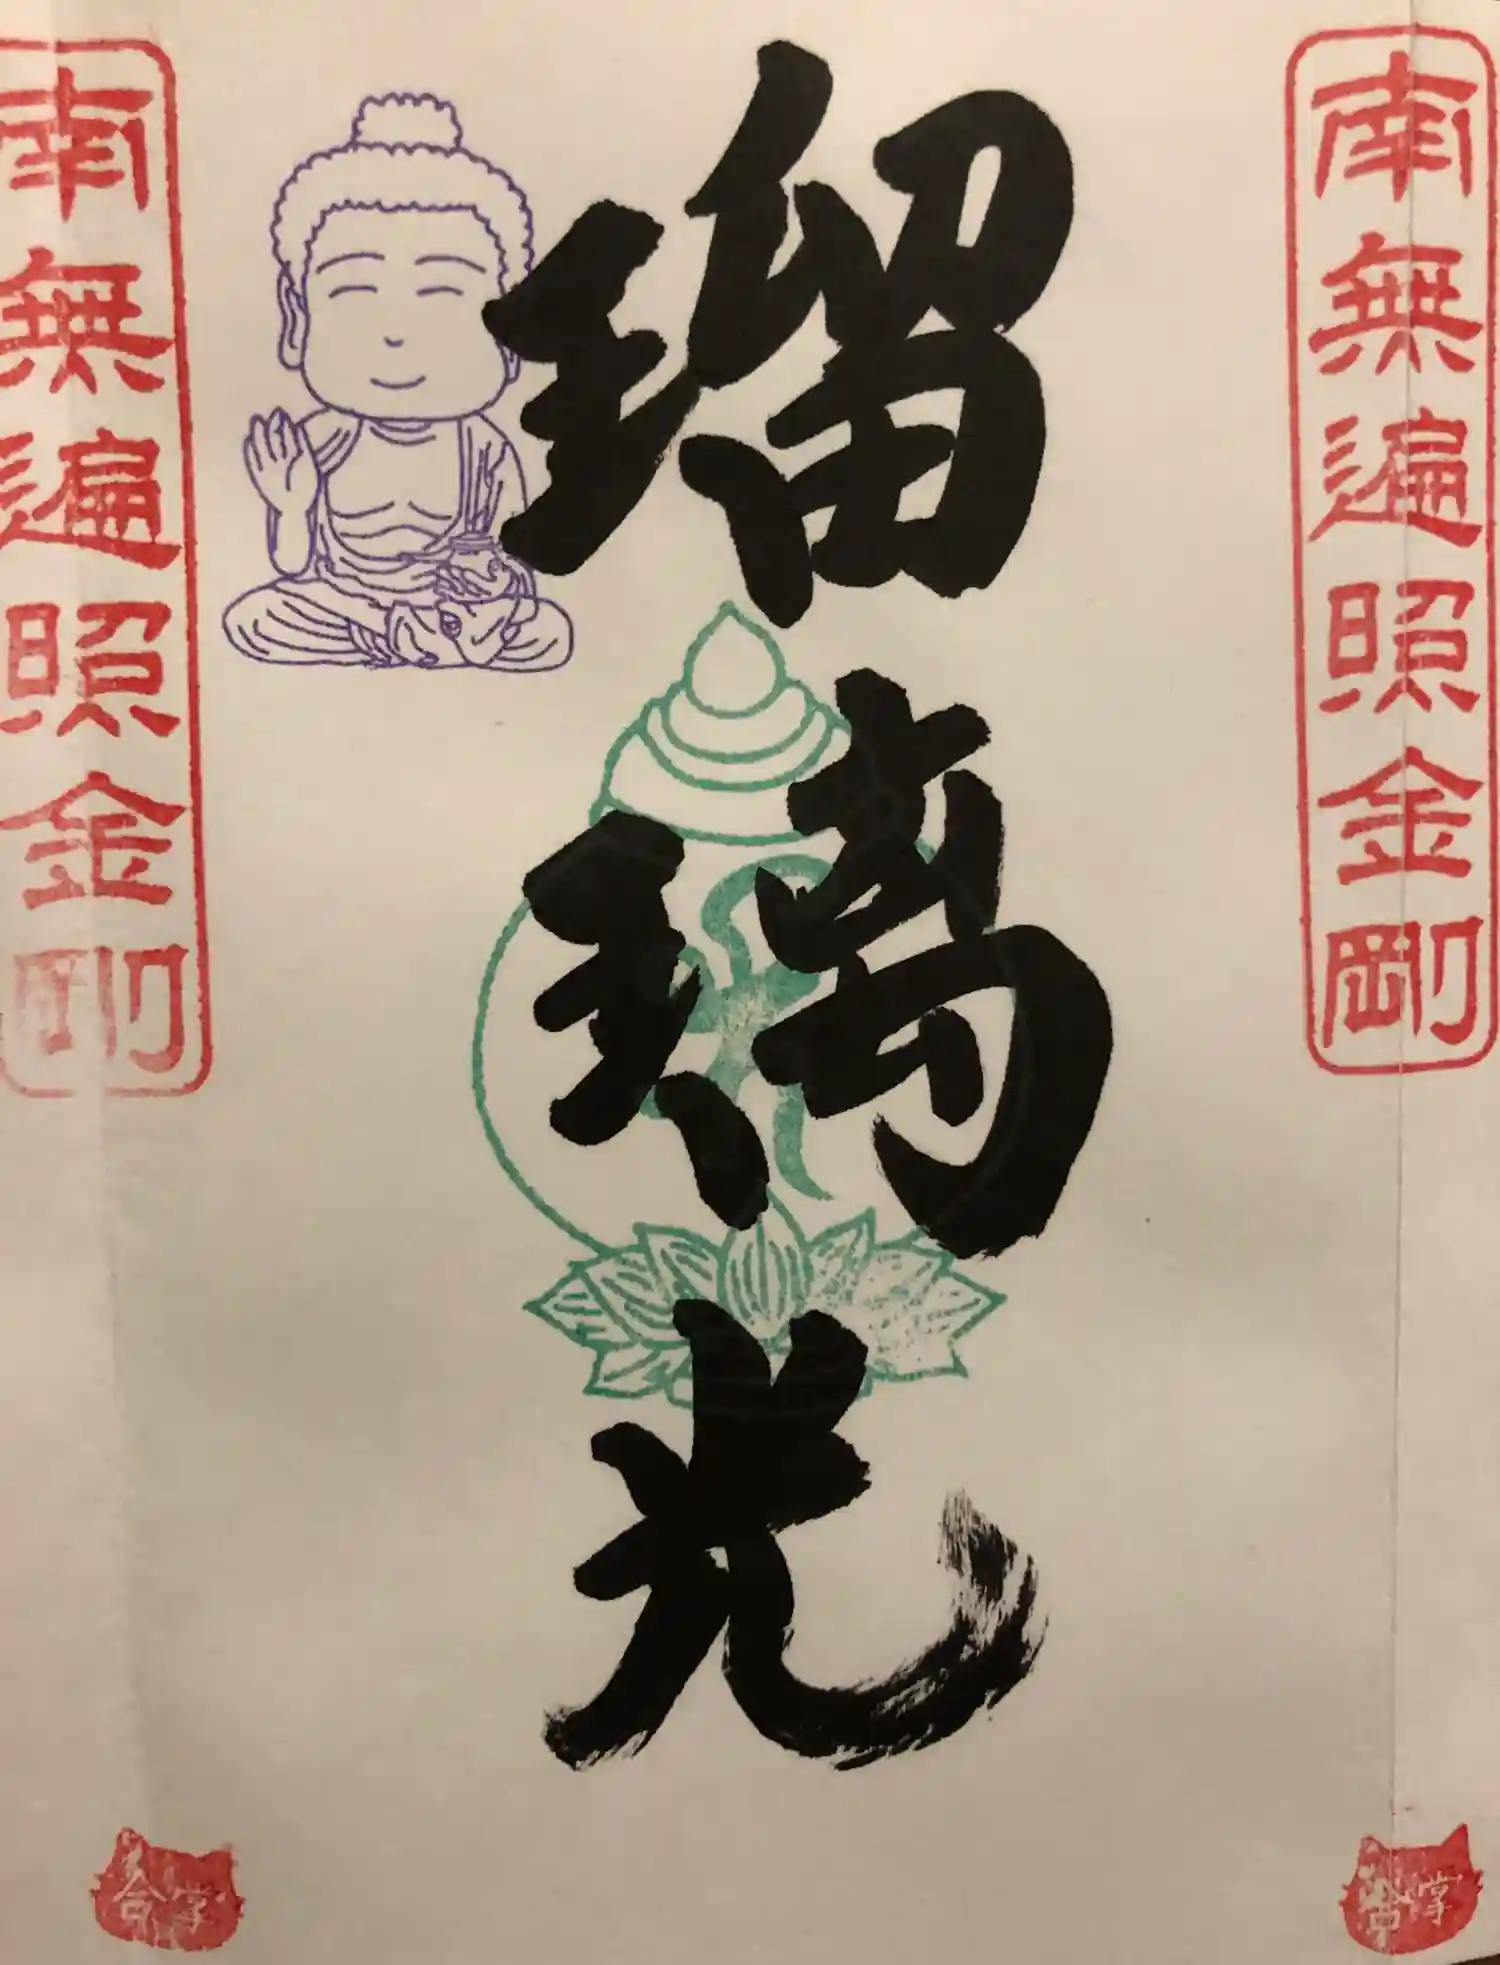 南無遍照金剛
瑠璃光
南無遍照金剛
合掌
合掌